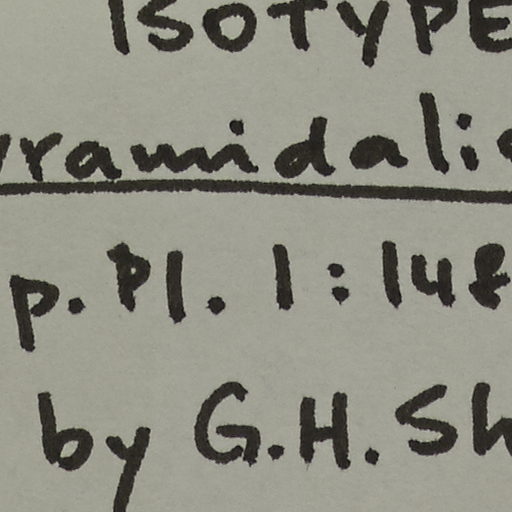 ISOTYPE
yramidalis
p. Pl. 1:148
by G.H. Sh